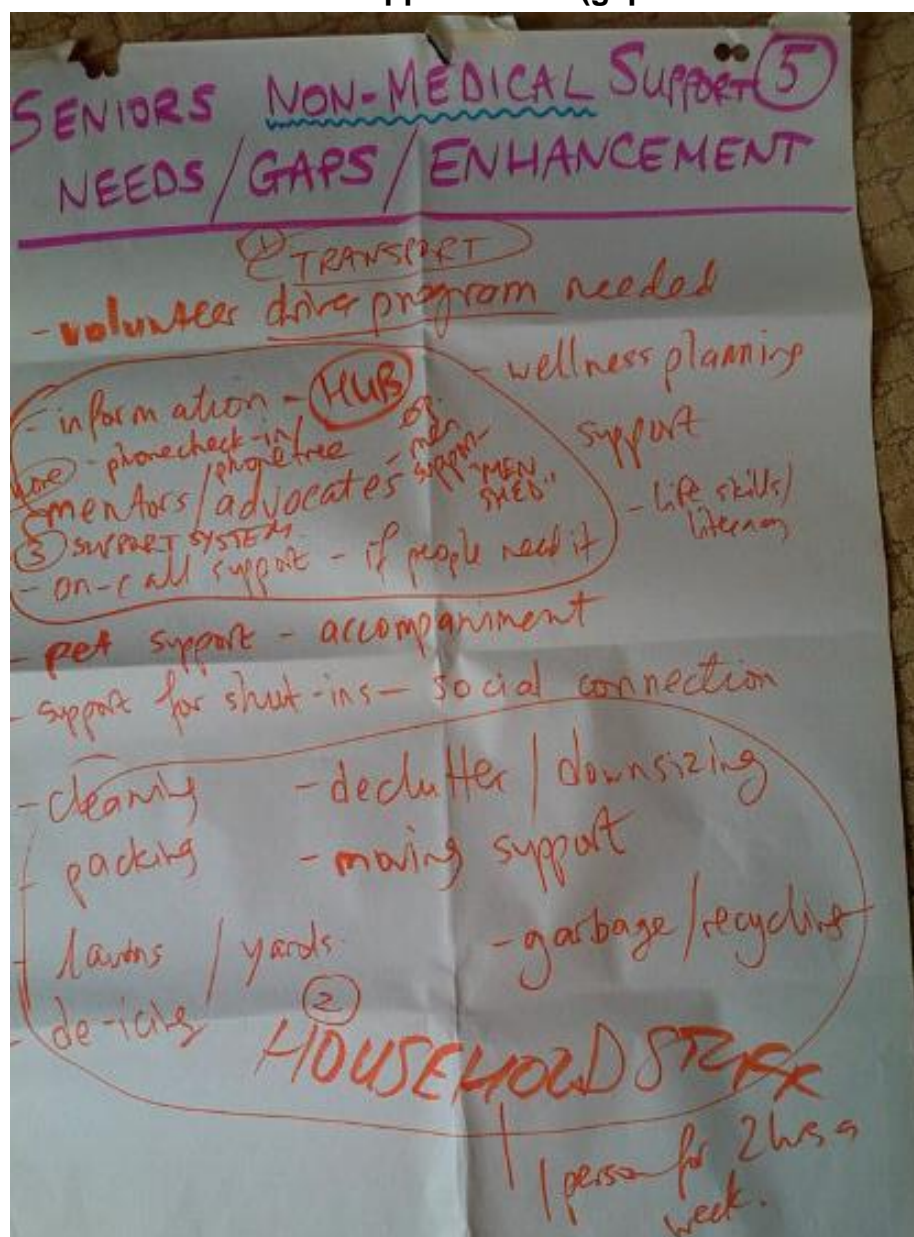 SENIORS NON-MEDICAL SUPPORT 5
NEEDS/GAPS/ENHANCEMENT
1 TRANSPORT
- volunteer driver program needed
- wellness planning
support
- life skills/
literacy
- information - HUB
- phone check-in/
phone tree
mentors/advocates - eg. men support "MEN SHED"
3 SUPPORT SYSTEM
- on-call support - if people need it
- pet support - accompaniment
- support for shut-ins - social connection
- cleaning - declutter / downsizing
- packing - moving support
- lawns / yards - garbage/recycling
- de-icing
2
HOUSEHOLD STUFF
1 person for 2 hrs a
week.